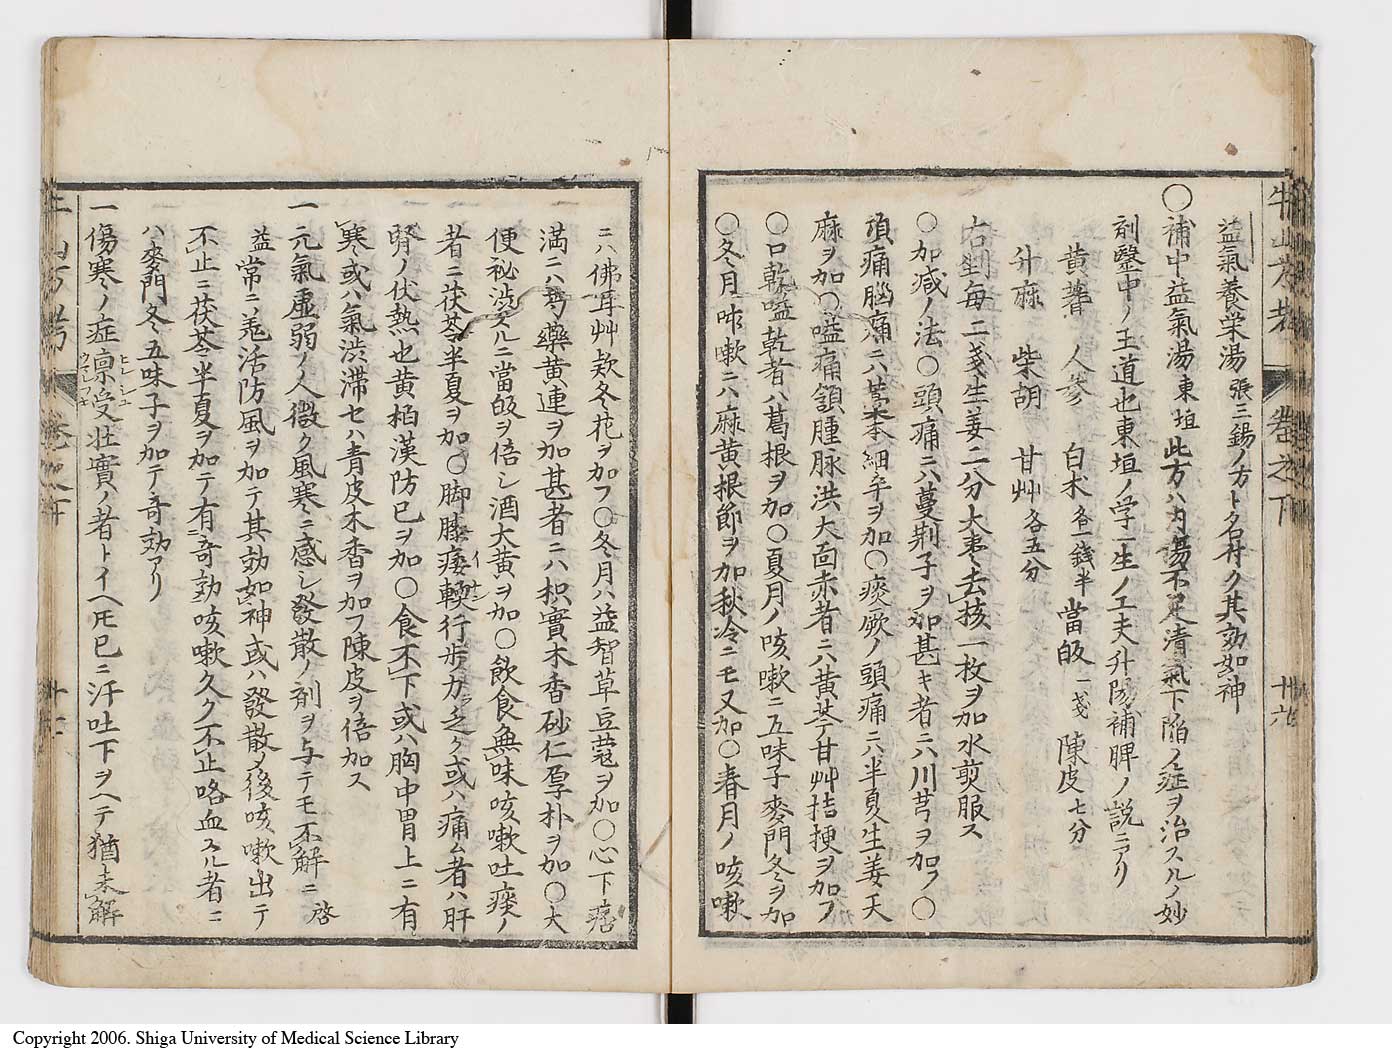 牛山方考 卷之下 廿六
益氣養栄湯張三錫ノ方ト名付ク其効如神
〇補中益氣湯東垣此方ハ内傷不足清氣下陷ノ症ヲ治スルノ妙
剤醫中ノ王道也東垣ノ学一生ノ工夫升陽補脾ノ説ニアリ
黄蓍 人参 白朮各一錢半 當皈一戔 陳皮七分
升麻 柴胡 甘艸各五分
右剉毎二戔生姜二分大棗去核一枚ヲ加水煎服ス
〇加减ノ法〇頭痛ニハ蔓荆子ヲ加甚キ者ニハ川芎ヲ加フ〇
頂痛腦痛ニハ藁本細辛ヲ加〇痰厥ノ頭痛ニハ半夏生姜天
麻ヲ加〇嗌痛頷腫脉洪大面赤者ニハ黄芩甘艸桔梗ヲ加フ
〇口乾嗌乾者ハ葛根ヲ加〇夏月ノ咳嗽ニ五味子麥門冬ヲ加
〇冬月咳嗽ニハ麻黄根節ヲ加秋冷ニモ又加〇春月ノ咳嗽
ニハ佛耳艸欵冬花ヲ加フ〇冬月ハ益智草豆蔲ヲ加〇心下痞
満ニハ芍藥黄連ヲ加甚者ニハ枳實木香砂仁厚朴ヲ加〇大
便祕渋スルニ當皈ヲ倍シ酒大黄ヲ加〇飲食無味咳嗽吐痰ノ
者ニ茯苓半夏ヲ加〇脚膝痿輭行歩力乏ク或ハ痛ム者ハ肝
腎ノ伏熱也黄柏漢防已ヲ加〇食不下或ハ胸中胃上ニ有
寒或ハ氣渋滞セハ青皮木香ヲ加フ陳皮ヲ倍加ス
一元氣虚弱ノ人微ク風寒ニ感シ發散ノ剤ヲ与テモ不解ニ啓
益常ニ羗活防風ヲ加テ其効如神或ハ發散メ後咳嗽出テ
不止ニ茯苓半夏ヲ加テ有奇効咳嗽久ク不止咯血スル者ニ
ハ麥門冬五味子ヲ加テ奇効アリ
一傷寒ノ症稟受壮實ノ者トイヘ𪜈已ニ汗吐下ヲヘテ猶未解
牛山方考 卷之下